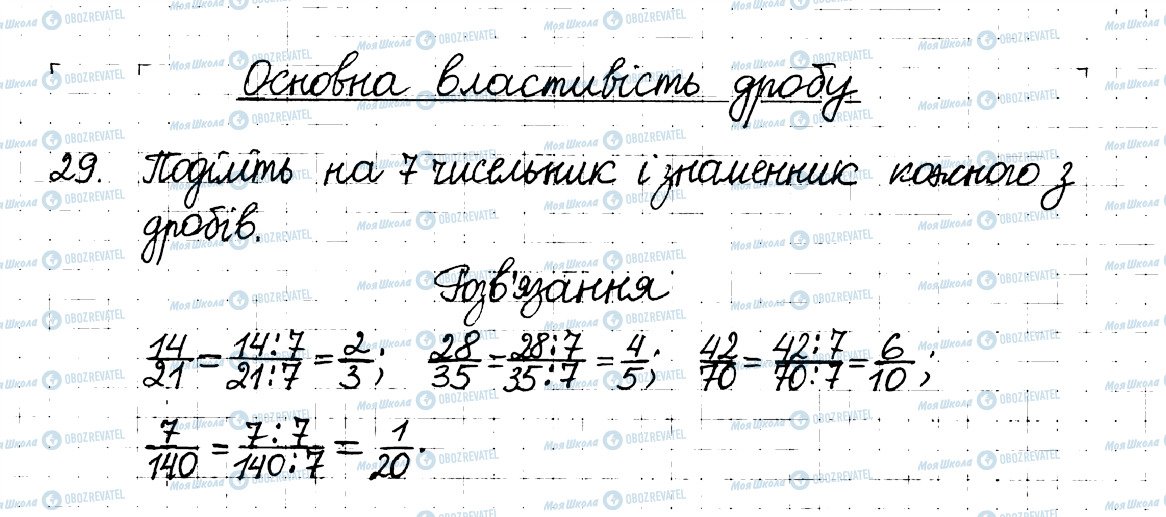 Основна властивість дробу
29. Поділіть на 7 чисельник і знаменник кожного з
дробів.
Розв'язання
14/21 = 14:7/21:7 = 2/3; 28/35 = 28:7/35:7 = 4/5; 42/70 = 42:7/70:7 = 6/10;
7/140 = 7:7/140:7 = 1/20.